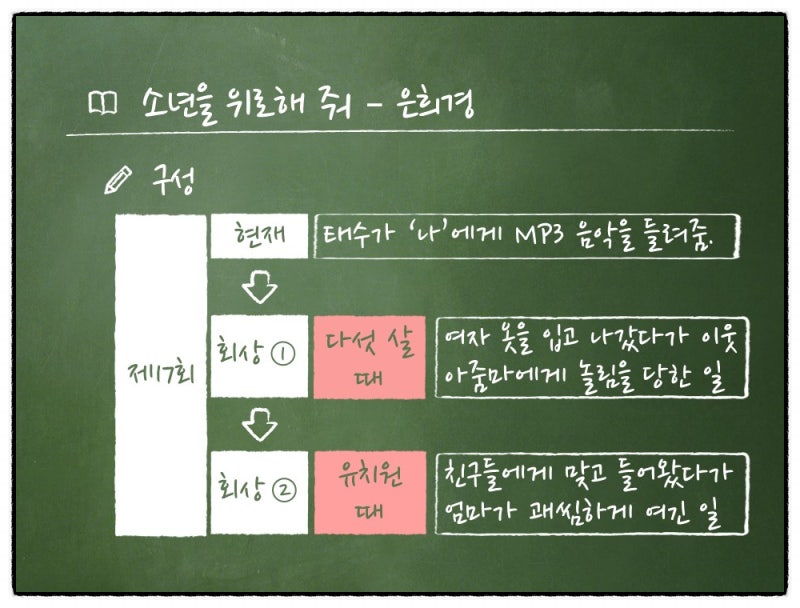 소년을 위로해 줘 - 은희경
구성
제17회
현재
태수가 '나'에게 MP3 음악을 들려줌.
회상 ①
다섯 살
때
여자 옷을 입고 나갔다가 이웃
아줌마에게 놀림을 당한 일
회상 ②
유치원
때
친구들에게 맞고 들어왔다가
엄마가 괘씸하게 여긴 일